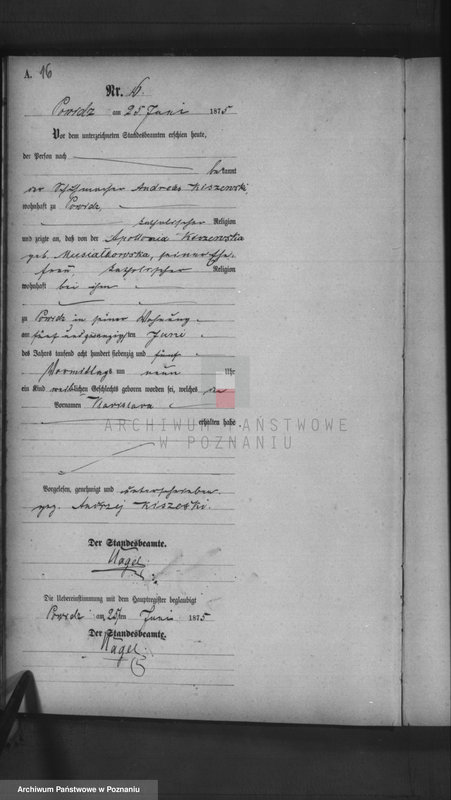 A. 16
Nr. 6.
Powidz am 25 Juni 1875
Vor dem unterzeichneten Standesbeamten erschien heute,
der Person nach
bekannt
der Schuhmacher Andreas Kiszewski,
wohnhaft zu Powidz,
katholischer Religion
und zeigte an, daß von der Apollonia Kiszewska
geb. Musialkowska, seiner Ehe-
frau, katholischer Religion
wohnhaft bei ihm
zu Powidz in seiner Wohnung
am fünf und zwanzigsten Juni
des Jahres tausend acht hundert siebenzig und fünf
Vormittags um neun Uhr
ein Kind weiblichen Geschlechts geboren worden sei, welches den
Vornamen
erhalten habe
ARCHIWUM PAŃSTWOWE
W POZNANIU
Vorgelesen, genehmigt und unterschrieben.
gez. Andrzej Kiszeski.
Der Standesbeamte.
Nagel.
Die Uebereinstimmung mit dem Hauptregister beglaubigt
Powidz am 25ten Juni 1875
Der Standesbeamte.
Nagel.
Archiwum Państwowe w Poznaniu